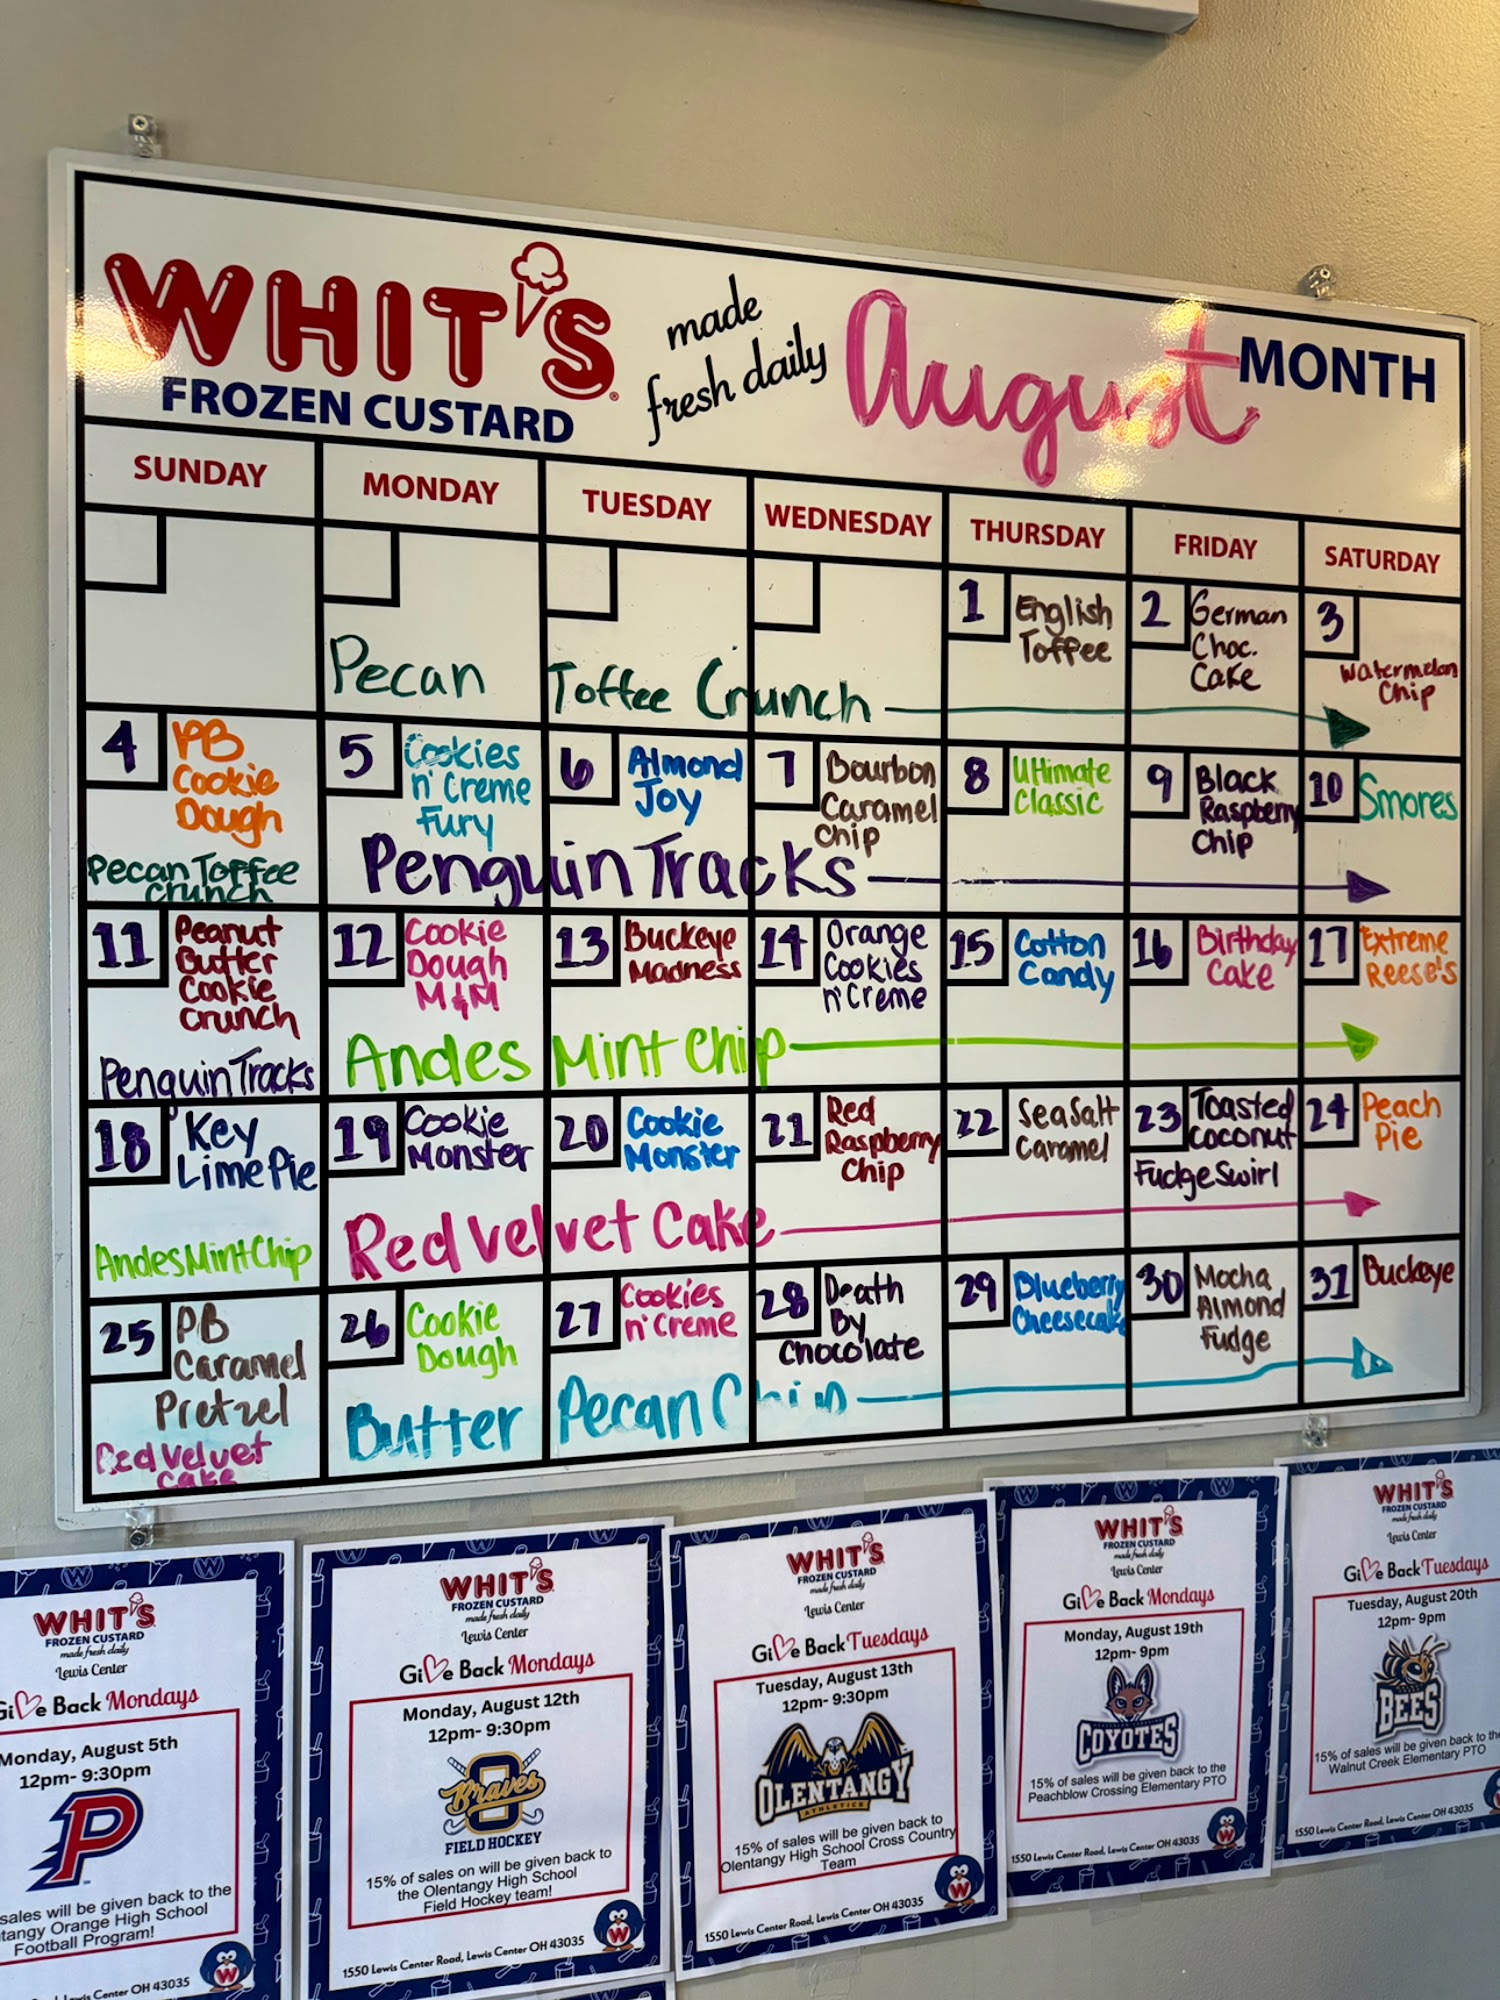 WHIT'S
FROZEN CUSTARD
made
fresh daily
August MONTH
SUNDAY MONDAY TUESDAY WEDNESDAY THURSDAY FRIDAY SATURDAY
1 English
Toffee
2 German
Choc.
Cake
3
Watermelon
Chip
Pecan Toffee Crunch
4 PB
Cookie
Dough
Pecan Toffee
Crunch
5 Cookies
n' Creme
Fury
6 Almond
Joy
7 Bourbon
Caramel
Chip
8 Ultimate
Classic
9 Black
Raspberry
Chip
10 Smores
Penguin Tracks
11 Peanut
Butter
Cookie
Crunch
Penguin Tracks
12 Cookie
Dough
M&M
13 Buckeye
Madness
14 Orange
Cookies
n' Creme
15 Cotton
Candy
16 Birthday
Cake
17 Extreme
Reese's
Andes Mint Chip
18 Key
Lime Pie
Andes Mint Chip
19 Cookie
Monster
20 Cookie
Monster
21 Red
Raspberry
Chip
22 Sea Salt
Caramel
23 Toasted
Coconut
Fudge Swirl
24 Peach
Pie
Red Velvet Cake
25 PB
Caramel
Pretzel
Red Velvet
Cake
26 Cookie
Dough
27 Cookies
n' Creme
28 Death
By
Chocolate
29 Blueberry
Cheesecake
30 Mocha
Almond
Fudge
31 Buckeye
Butter Pecan Chip
WHIT'S
FROZEN CUSTARD
made fresh daily
Lewis Center
Give Back Mondays
Monday, August 5th
12pm- 9:30pm
P
sales will be given back to the
Orange High School
Football Program!
Lewis Center OH 43035
W
WHIT'S
FROZEN CUSTARD
made fresh daily
Lewis Center
Give Back Mondays
Monday, August 12th
12pm- 9:30pm
Braves
FIELD HOCKEY
15% of sales on will be given back to
the Olentangy High School
Field Hockey team!
1550 Lewis Center Road, Lewis Center OH 43035
W
WHIT'S
FROZEN CUSTARD
made fresh daily
Lewis Center
Give Back Tuesdays
Tuesday, August 13th
12pm- 9:30pm
OLENTANGY
ATHLETICS
15% of sales will be given back to
Olentangy High School Cross Country
Team
1550 Lewis Center Road, Lewis Center OH 43035
W
WHIT'S
FROZEN CUSTARD
made fresh daily
Lewis Center
Give Back Mondays
Monday, August 19th
12pm- 9pm
COYOTES
15% of sales will be given back to the
Peachblow Crossing Elementary PTO
1550 Lewis Center Road, Lewis Center OH 43035
W
WHIT'S
FROZEN CUSTARD
made fresh daily
Lewis Center
Give Back Tuesdays
Tuesday, August 20th
12pm- 9pm
BEES
15% of sales will be given back to the
Walnut Creek Elementary PTO
1550 Lewis Center Road, Lewis Center OH 43035